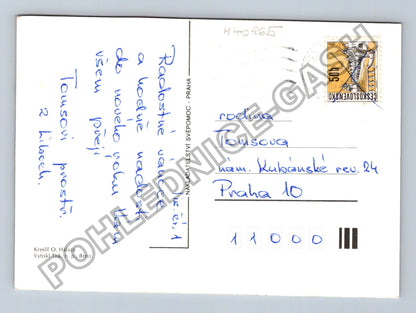 M 40865
Radostné vánoce
a hodně radosti
do nového roku Vám
všem přejí
Tomsovi prostř.
z Liběch.
NAKLADATELSTVÍ SVĚPOMOC - PRAHA
č. 1
50h
ČESKOSLOVENSKO
rodina
Tomsova
nám. Kubánské rev. 24
Praha 10
11000
Kreslil O.
Vytiskl
POHLEDNICE-GASH